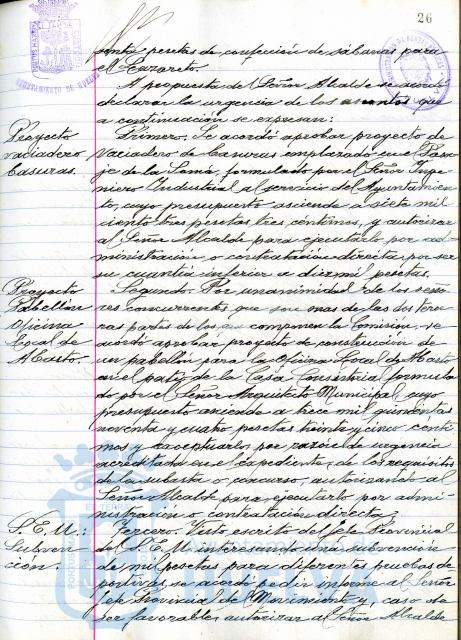 26
senta pesetas de confección de sábanas para
el Lazareto.
A propuesta del Señor Alcalde se acordó
declarar la urgencia de los asuntos que
a continuación se expresan:
Proyecto
vaciadero
basuras.
Primero. Se acordó aprobar proyecto de
vaciadero de basuras emplazado en el Para-
je de la Soma, formulado por el Señor Inge-
niero Industrial al servicio del Ayuntamien-
to, cuyo presupuesto asciende a siete mil
ciento tres pesetas tres céntimos, y autorizar
al Señor Alcalde para ejecutarlo por ad-
ministración o contratación directa, por ser
su cuantía inferior a diez mil pesetas.
Proyecto
Pabellón
Oficina
Local de
Abasto.
Segundo. Por unanimidad de los seño-
res concurrentes que son mas de las dos terce-
ras partes de los que componen la Comisión, se
acordó aprobar proyecto de construcción de
un pabellón para la Oficina Local de Abasto
en el patio de la Casa Consistorial formula-
do por el Señor Arquitecto Municipal, cuyo
presupuesto asciende a trece mil quinientas
noventa y cuatro pesetas treinta y cinco centi-
mos y exceptuarlo, por razón de urgencia
acreditada en el expediente, de los requisitos
de la subasta o concurso, autorizando al
Señor Alcalde para ejecutarlo por admi-
nistración o contratación directa.
S. E. U.:
Subven-
ción.
Tercero. Visto escrito del Jefe Provincial
del S. E. U. interesando una subvención
de mil pesetas para diferentes pruebas de-
portivas, se acordó pedir informe al Señor
Jefe Provincial del Movimiento y, caso de
ser favorable, autorizar al Señor Alcalde